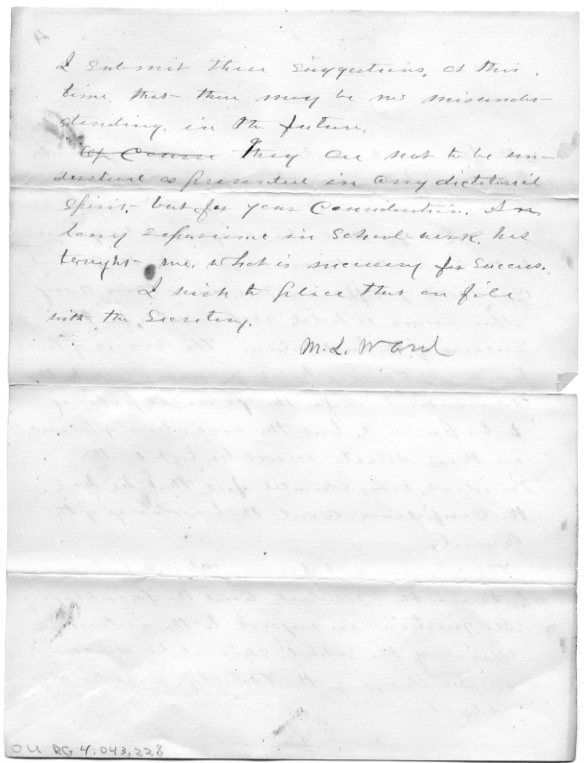 4
I submit these suggestions, at this
time that there may be no misunder-
standing in the future.
Of Course they are not to be un-
derstood as presented in any dictatorial
spirit, but for your Consideration. A
long experience in School work, has
taught me, what is necessary for success.
I wish to place this on file
with the Secretary.
M. L. Ward
OU RG 4.043.228